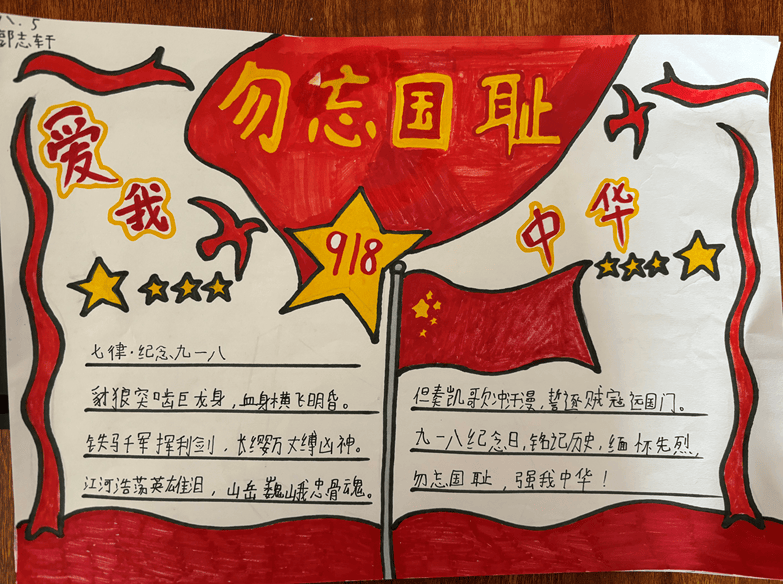 八.5
郭志轩
勿忘国耻
爱我
中华
918
七律·纪念九一八
豺狼突啮巨龙身，血身横飞明昏。
铁马千军挥利剑，长缨万丈缚凶神。
江河浩荡英雄泪，山岳巍峨忠骨魂。
但奏凯歌冲汗漫，誓逐贼寇远国门。
九一八纪念日，铭记历史，缅怀先烈，
勿忘国耻，强我中华！